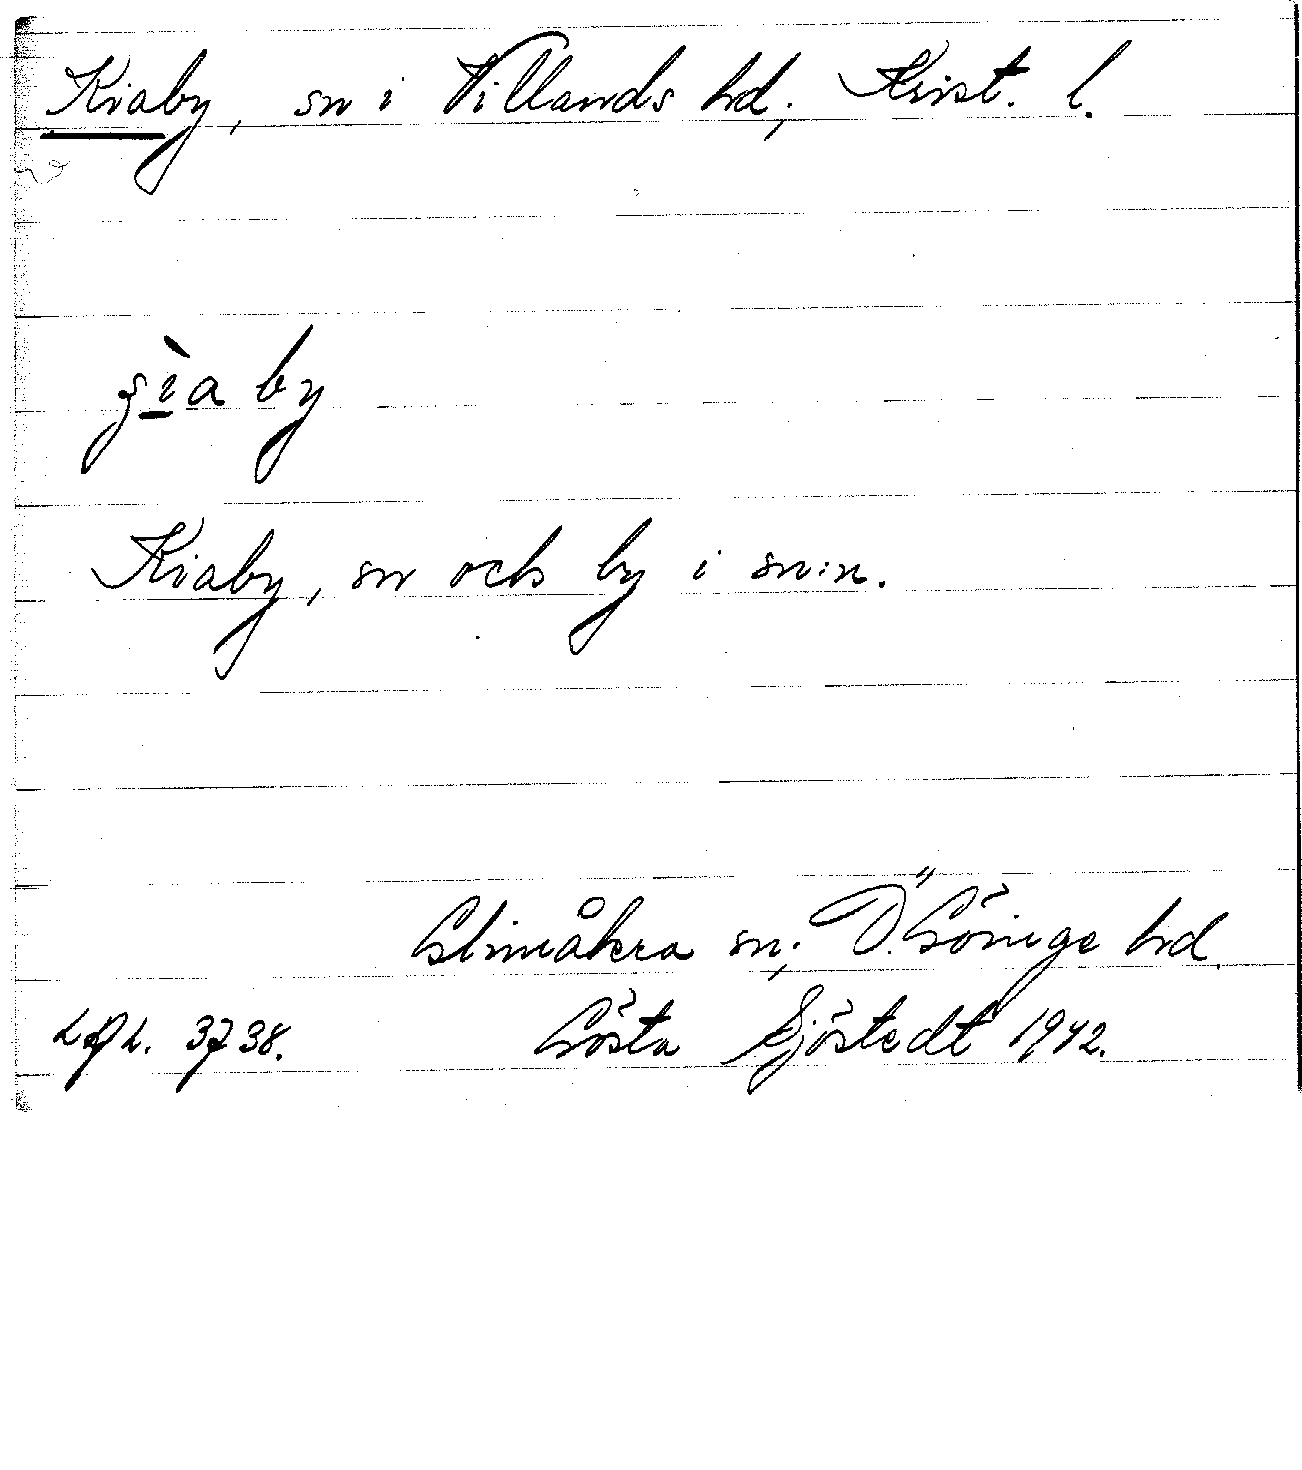 Kiaby, sn i Villands hd, Krist. l.
by
Kiaby, sn och by i sn:n.
Glimåkra sn, Ö. Göinge hd.
3738. Gösta Sjöstedt 1942.